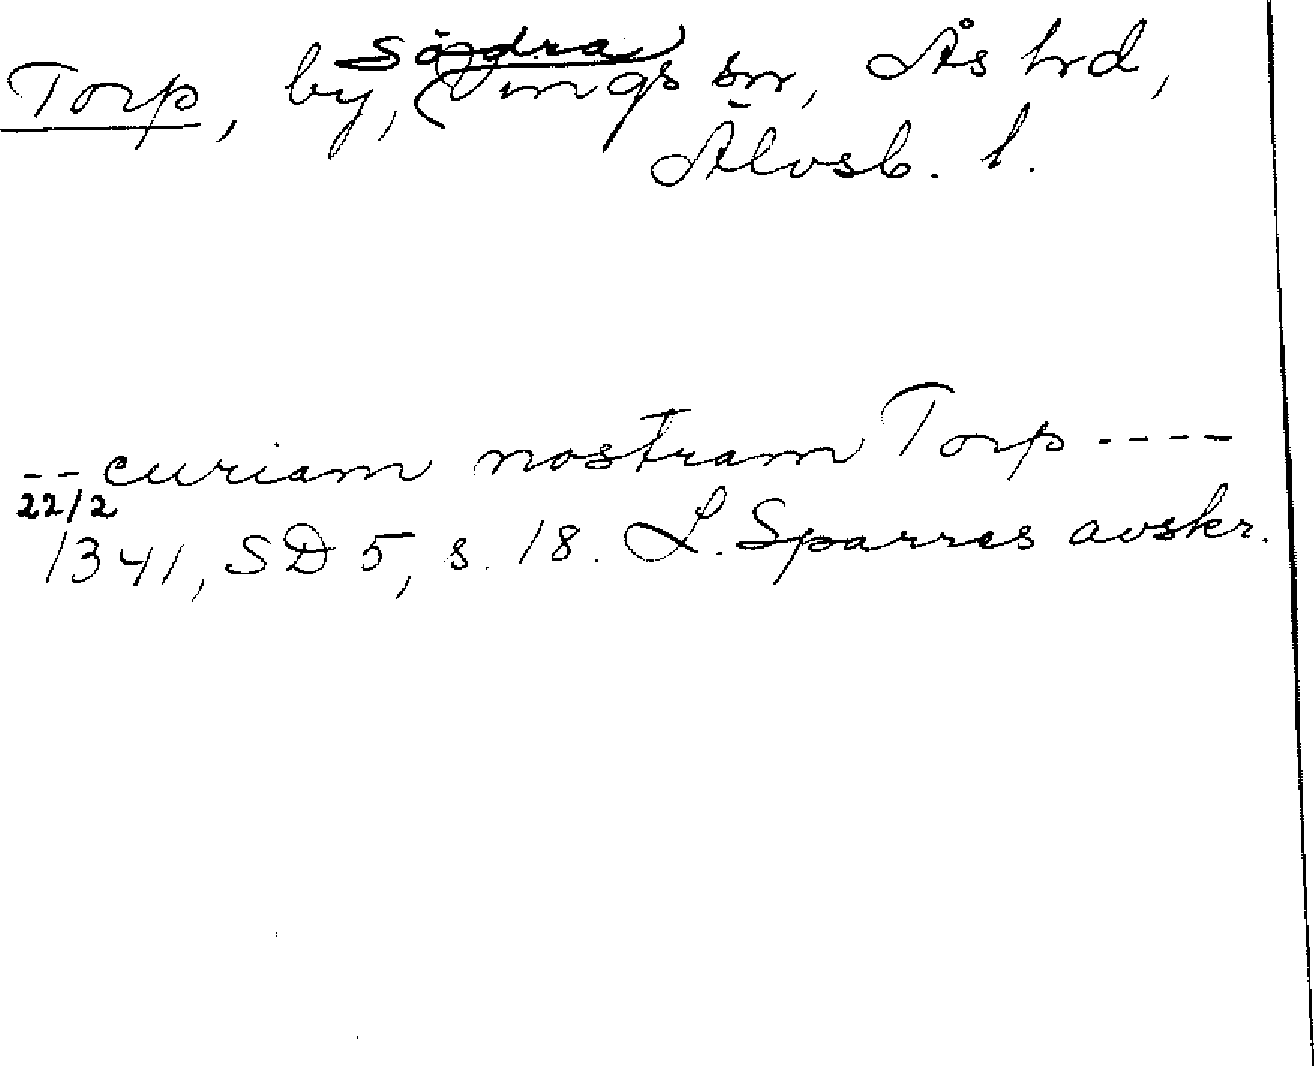 Södra
Torp, by, Vings sn, Ås hd,
Älvsb. l.
-- curiam nostram Torp ----
22/2
1341, SD 5, s. 18. L. Sparres avskr.